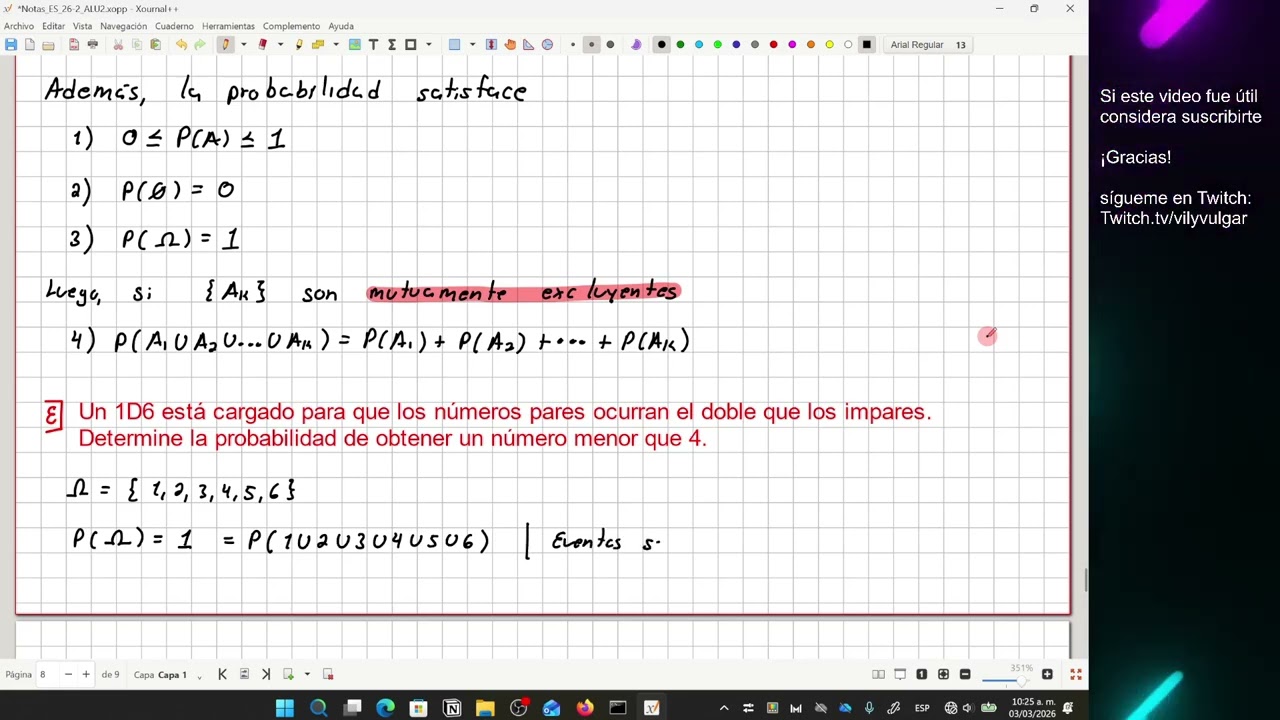 *Notas_ES_26-2_ALU2.xopp - Xournal++
Archivo Editar Vista Navegación Cuaderno Herramientas Complemento Ayuda
Arial Regular 13
Además, la probabilidad satisface
1) 0 ≤ P(A) ≤ 1
2) P(Ø) = 0
3) P(Ω) = 1
Luego, si {Aₖ} son mutuamente excluyentes
4) P(A₁ ∪ A₂ ∪ ... ∪ Aₖ) = P(A₁) + P(A₂) + ... + P(Aₖ)
E Un 1D6 está cargado para que los números pares ocurran el doble que los impares.
Determine la probabilidad de obtener un número menor que 4.
Ω = { 1, 2, 3, 4, 5, 6 }
P(Ω) = 1 = P(1 ∪ 2 ∪ 3 ∪ 4 ∪ 5 ∪ 6) | Eventos s
Si este video fue útil
considera suscribirte
¡Gracias!
sígueme en Twitch:
Twitch.tv/vilyvulgar
Página 8 de 9 Capa Capa 1 351%
ESP 10:25 a. m.
03/03/2026